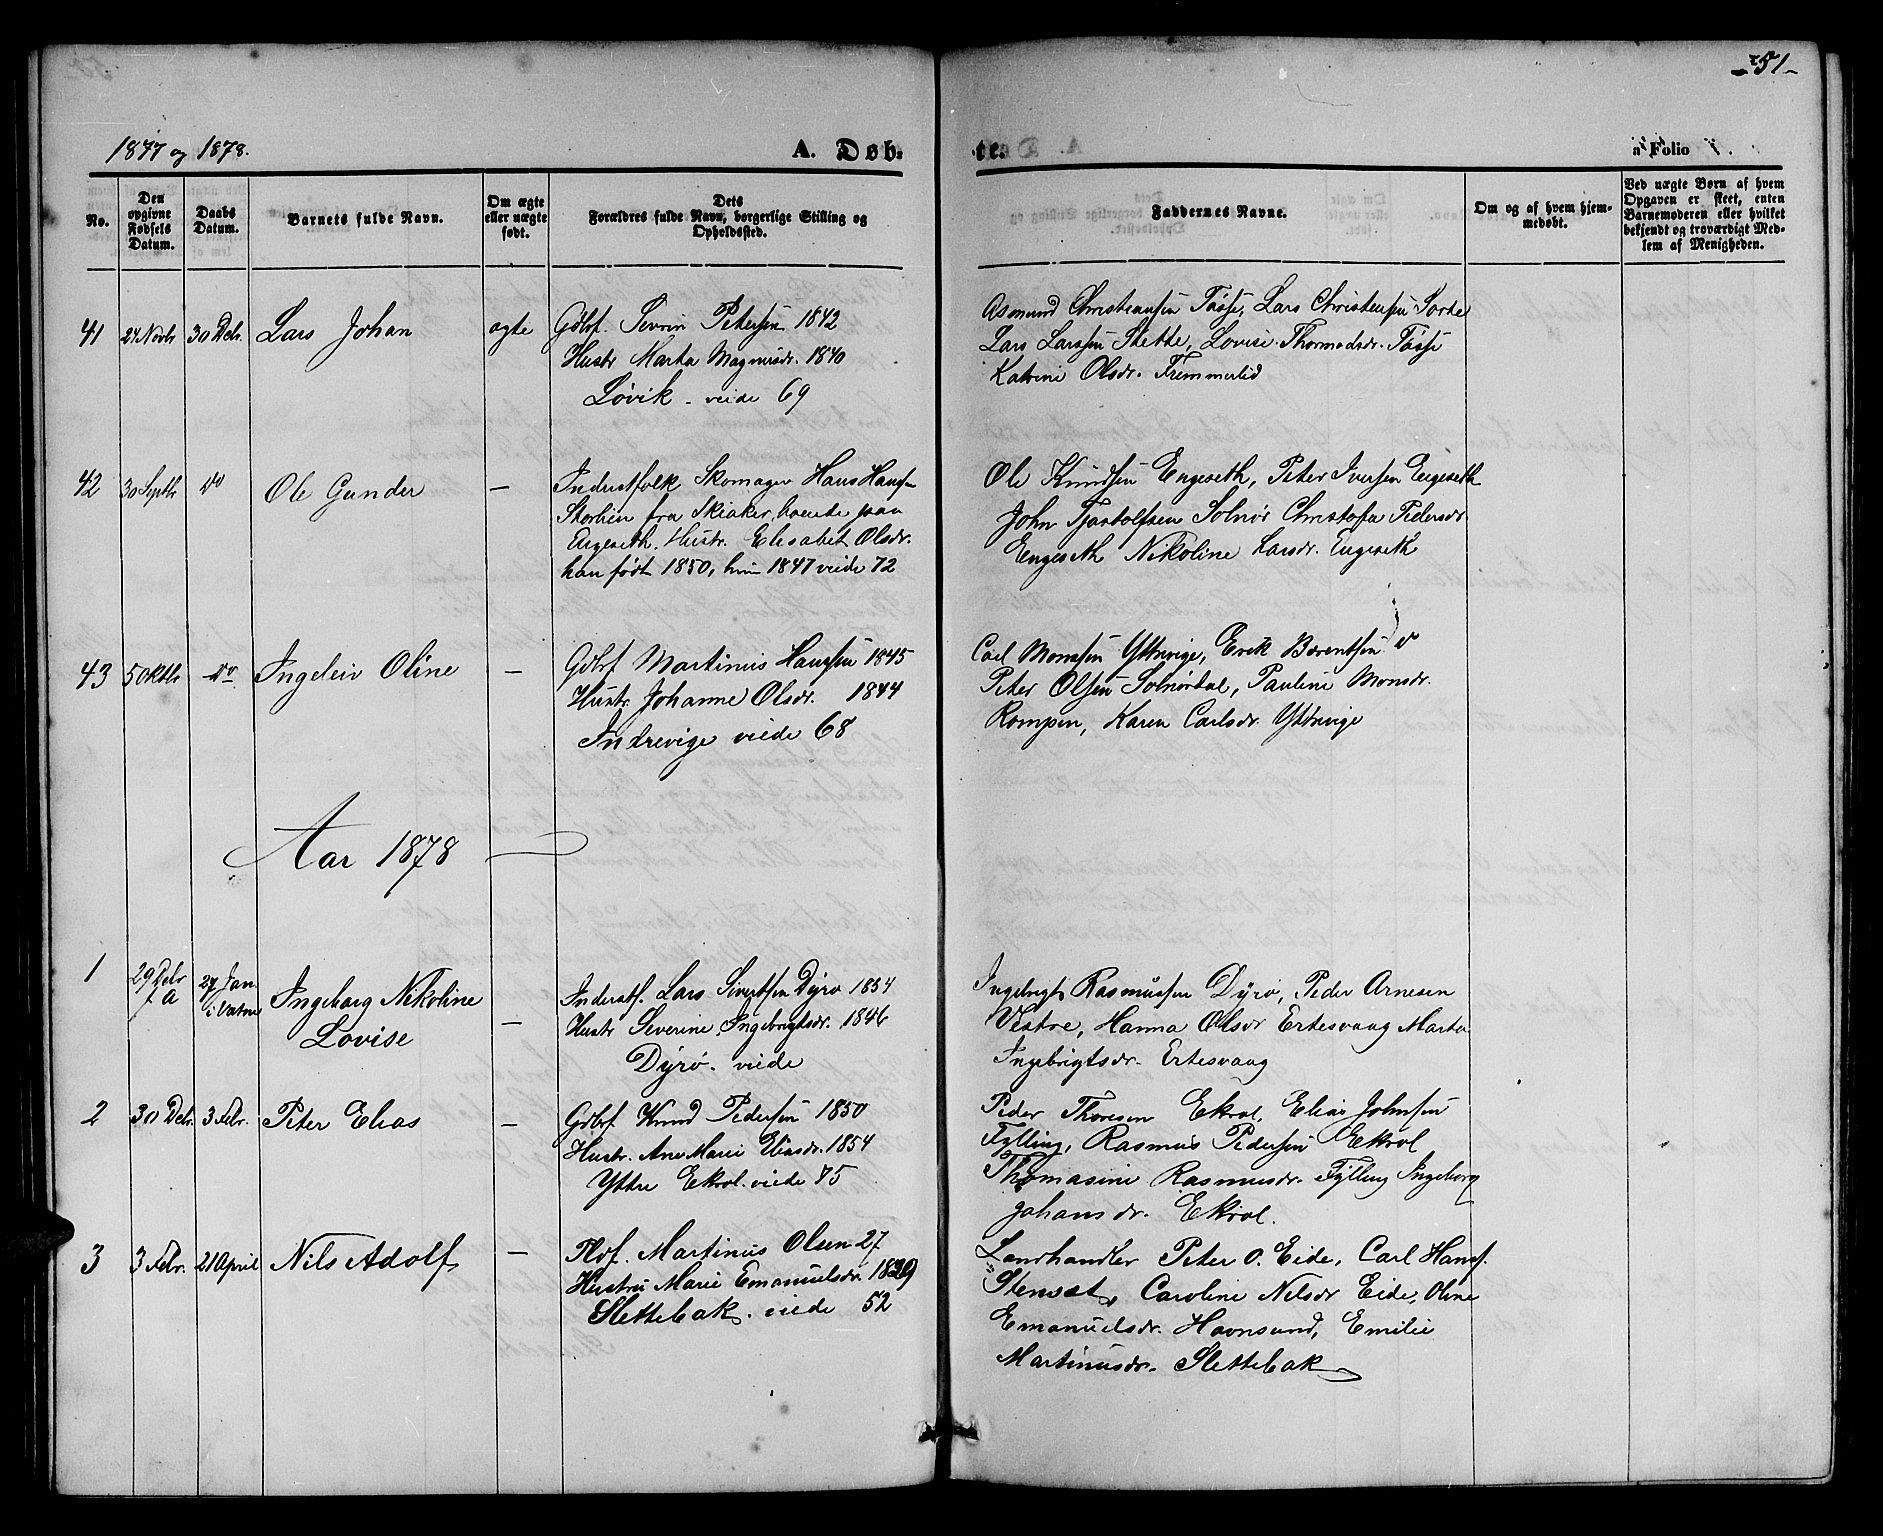 -51-
1877 og 1878.
A. Døb-
te.
Folio
No.
Den opgivne Fødsels Datum.
Daabs Datum.
Barnets fulde Navn.
Om ægte eller uægte født.
Dets Forældres fulde Navn, borgerlige Stilling og Opholdssted.
Faddernes Navne.
Om og af hvem hjemmedøbt.
Ved uægte Børn af hvem Opgaven er skeet, enten Barnemoderen eller hvilket bekjendt og troværdigt Medlem af Menigheden.
41 27 Novbr 30 Debr. Lars Johan ægte Gdbrf. Sevrin Petersen 1842
Hustr Marta Magnusdr. 1840
Løvik - viede 69
Asmund Christensen Tøsse, Lars Christensen
Lars Larssen Slette, Lovise Thormodsdr. Tøsse
Katrine Olsdr. Fremmerlid
42 30 Septbr do Ole Gunder — Inderstfolk Skomager Hans Hans-
fra Skiaker, boende paa
Engeseth. Hustr. Elisabet Olsdr.
han født 1850, hun 1847 viede 72
Ole Knudsen Engeseth, Peter Iversen Engeseth
John Solnør Christofa Pedersdr
Engeseth Nikoline Larsdr. Engeseth
43 5 Oktbr do Ingeleiv Oline — Gdbrf Martinus Hanssen 1845
Hustr. Johanne Olsdr. 1844
Indrevige viede 68
Carl Monssen Yttrevige, Erik Berentsen do
Peter Olsen Solnørdal, Pauline Monsdr.
Rompen, Karen Carlsdr. Yttrevige
Aar 1878
1 29 Debr f. A 27 Jan. i Vatne Ingeborg Nikoline
Lovise
— Inderstf. Lars Sivertsen Dyrø 1854
Hustr Severine Ingebrigtsdr. 1846
Dyrø. viede
Ingebrigt Rasmussen Dyrø, Peder Arnesen
Vestre, Hanna Olsdr Ertesvaag Marta
Ingebrigtsdr. Ertesvaag
2 30 Debr. 3 Febr. Peter Elias — Gdbrf Knud Pedersen 1850
Hustr. Ane Marie Eliasdr. 1854
Yttre Ekrol. viede 75
Peder Thoresen Ekrol, Elias Johnsen
Fylling, Rasmus Pedersen Ekrol
Thomasine Rasmusdr. Fylling Ingeborg
Johansdr. Ekrol.
3 3 Febr. 21 April Nils Adolf — Plds. Martinus Olsen 27
Hustru Marie Emanuelsdr. 1829
Slettebak. viede 52
Landhandler Peter O. Eide, Carl Hansf.
Stenset, Caroline Nilsdr Eide, Oline
Emanuelsdr. Havnsund, Emilie
Martinusdr. Slettebak